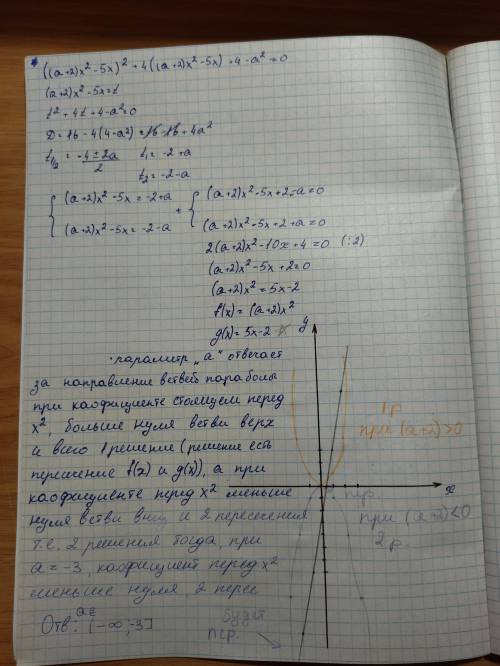 ((a+2)x²-5x)²+4((a+2)x²-5x)+4-a²=0
(a+2)x²-5x=t
t²+4t+4-a²=0
D=16-4(4-a²)=16-16+4a²
t₁/₂ = -4±2a/2 t₁=-2+a
t₂=-2-a
(a+2)x²-5x=-2+a + (a+2)x²-5x+2-a=0
(a+2)x²-5x=-2-a (a+2)x²-5x+2+a=0
2(a+2)x²-10x+4=0 (:2)
(a+2)x²-5x+2=0
(a+2)x²=5x-2
f(x)=(a+2)x²
g(x)=5x-2
y
·параметр „a“ отвечает
за направление ветвей параболы
при каофициенте стоящем перед
x², больше нуля ветви верх
и всего 1 решение (решение есть
пересечение f(x) и g(x)), а при
каофициенте перед x² меньше
нуля ветви вниз и 2 пересечения
т.е. 2 решения тогда, при
a=-3, каофициент перед x²
меньше нуля, 2 перес
Отв: a∈ [-∞;-3]
1р.
при (a+2)>0
пер.
x
при (a+2)<0
2р.
будет
пер.